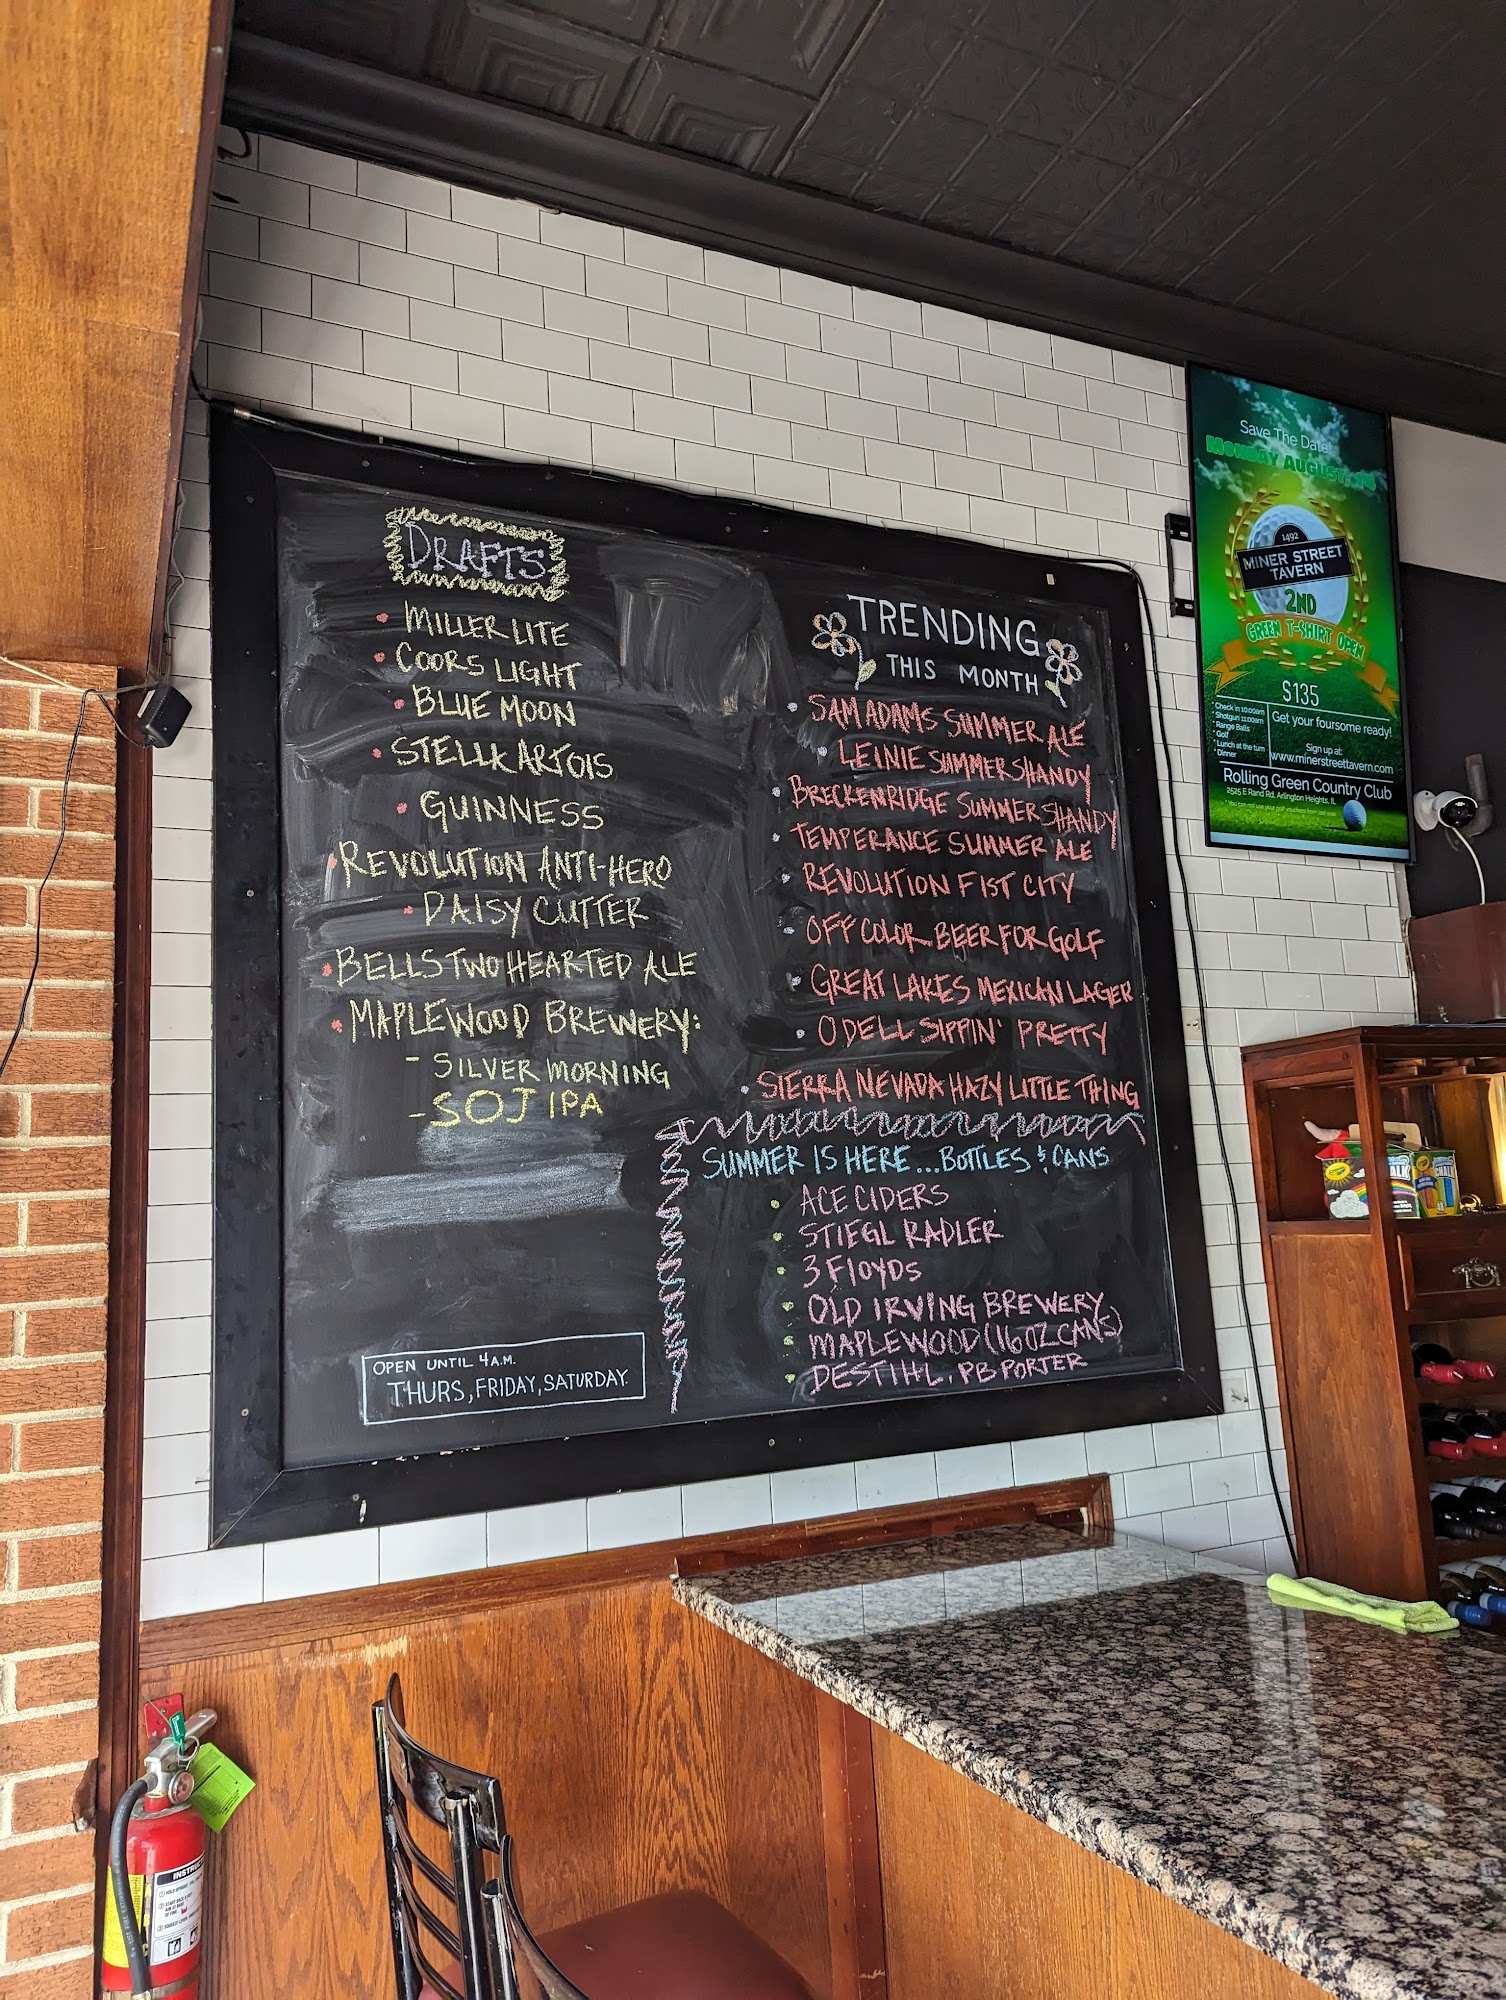 DRAFTS
MILLER LITE
COORS LIGHT
BLUE MOON
STELLA ARTOIS
GUINNESS
REVOLUTION ANTI-HERO
DAISY CUTTER
BELLS TWO HEARTED ALE
MAPLEWOOD BREWERY:
- SILVER MORNING
- SOJ IPA
OPEN UNTIL 4 A.M.
THURS, FRIDAY, SATURDAY
TRENDING
THIS MONTH
SAM ADAMS SUMMER ALE
LEINIE SUMMER SHANDY
BRECKENRIDGE SUMMER SHANDY
TEMPERANCE SUMMER ALE
REVOLUTION FIST CITY
OFF COLOR BEER FOR GOLF
GREAT LAKES MEXICAN LAGER
ODELL SIPPIN' PRETTY
SIERRA NEVADA HAZY LITTLE THING
SUMMER IS HERE... BOTTLES & CANS
ACE CIDERS
STIEGL RADLER
3 FLOYDS
OLD IRVING BREWERY
MAPLEWOOD (16 OZ CANS)
DESTIHL, PB PORTER
Save The Date!
MONDAY AUGUST 14
1492
MINER STREET
TAVERN
2ND
GREEN T-SHIRT OPEN
$135
* Check in 10:00am
* Shotgun 11:00am
* Range Balls
* Golf
* Lunch at the turn
* Dinner
Get your foursome ready!
Sign up at:
www.minerstreettavern.com
Rolling Green Country Club
2525 E Rand Rd, Arlington Heights, IL
CHALK